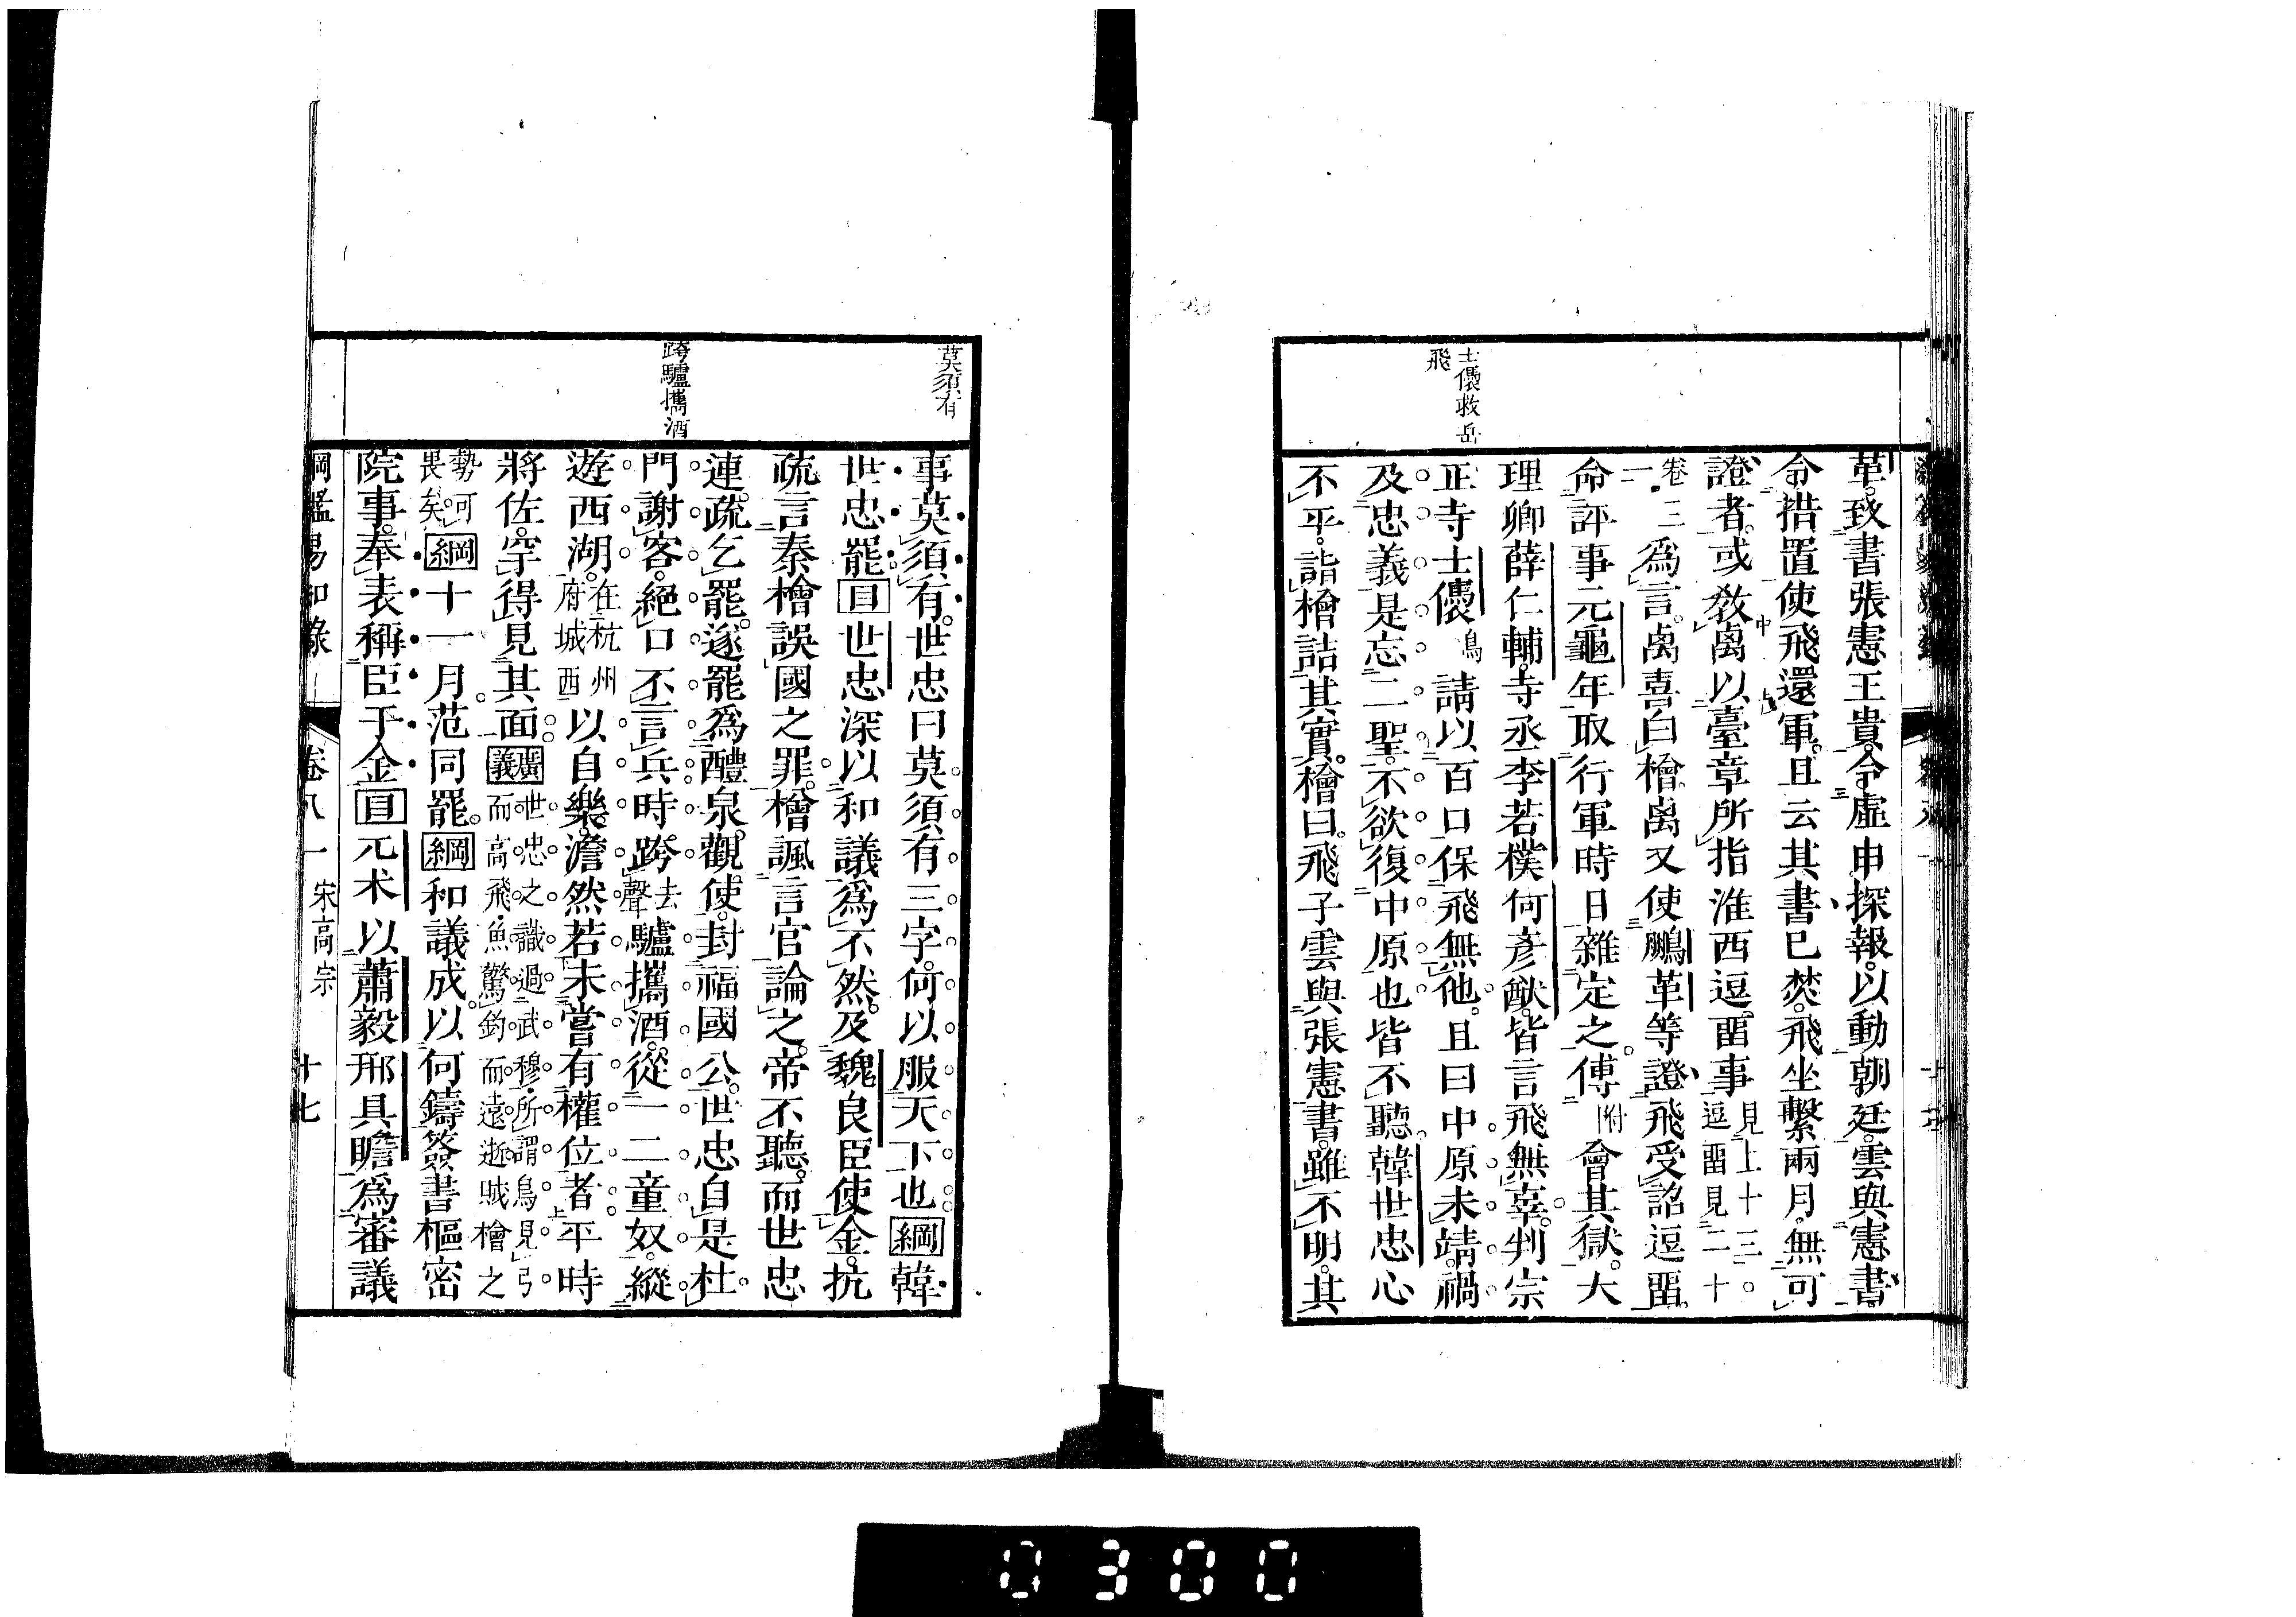 士㒟救岳
飛
革。致書張憲王貴。令虛申探報。以動朝廷。雲與憲書。
令措置使飛還軍。且云其書已焚。飛坐繫兩月。無可
證者。或教卨以臺章所指淮西逗畱事見上十三。
逗畱見二十
卷一
二
爲言。卨喜白檜。卨又使鵬革等證飛受詔逗畱。
命評事元龜年取行軍時日雜定之。傅附會其獄。大
理卿薛仁輔。寺丞李若樸何彥猷。皆言飛無辜。判宗
正寺士㒟鳥請以百口保飛無他。且曰中原未靖。禍
及忠義。是忘二聖。不欲復中原也皆不聽。韓世忠心
不平。詣檜詰其實。檜曰。飛子雲與張憲書。雖不明。其
莫須有
跨驢攜酒
事莫須有。世忠曰莫須有三字。何以服天下也綱韓
世忠罷目世忠深以和議爲不然。及魏良臣使金。抗
疏言秦檜誤國之罪。檜諷言官論之。帝不聽。而世忠
連疏乞罷。遂罷爲醴泉觀使。封福國公。世忠自是杜
門謝客。絕口不言兵時跨去聲驢攜酒。從一二童奴。縱
遊西湖。在杭州
府城西
以自樂。澹然若未嘗有權位者平時
將佐。罕得見其面廣義世忠之識過武穆。所謂鳥見弓
而高飛。魚驚鈞而遠逝。賊檜之
勢可
畏矣。
綱十一月。范同罷。綱和議成。以何鑄簽書樞密
院事。奉表稱臣于金目兀朮以蕭毅邢具瞻爲審議
綱鑑易知錄 卷八一 宋高宗 十七
0300